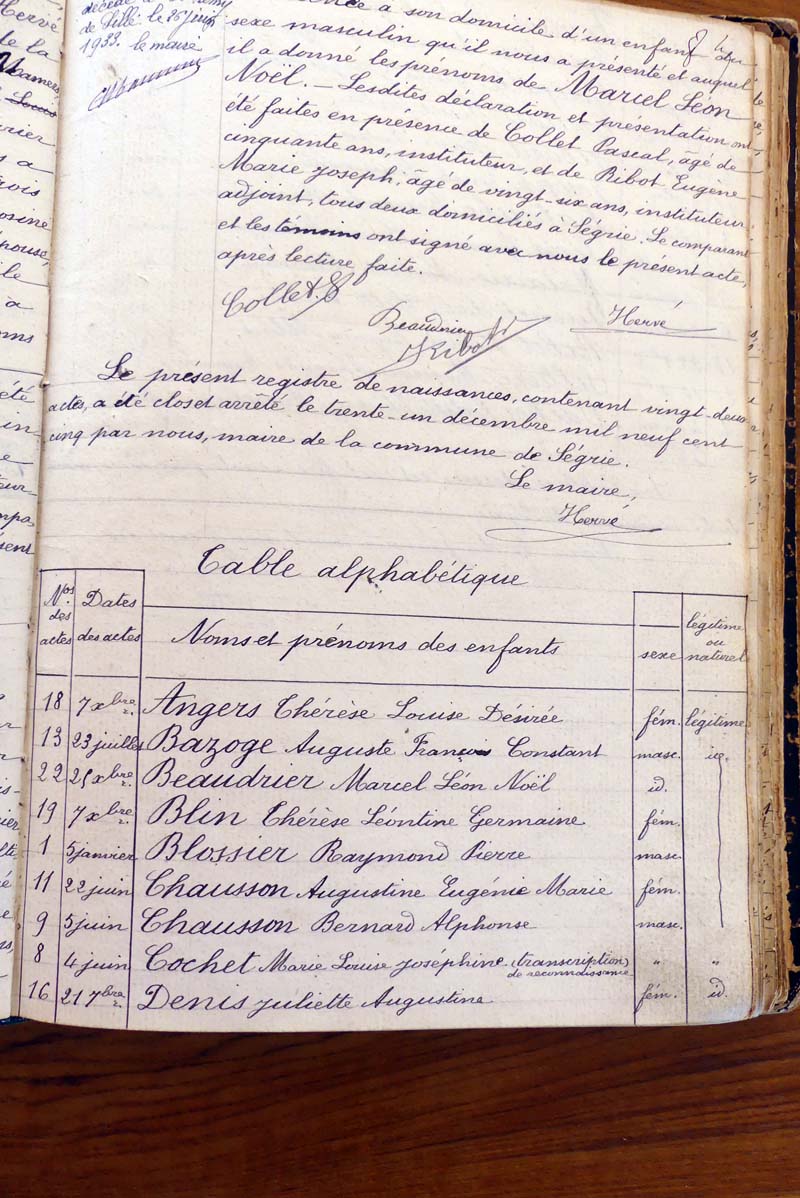 Hervé
de la
Mamers
rier
s a
rois
osine
pouse,
ile
à
été
in-
e
eur
mpa
ésent
décédé
de Pillé le 26
1933. le maire
a son domicile d'un enfant du
sexe masculin qu'il nous a présenté et auquel
il a donné les prénoms de Marcel Léon
Noël. — Lesdites déclaration et présentation ont
été faites en présence de Collet Pascal, âgé de
cinquante ans, instituteur, et de Ribot Eugène
Marie Joseph, âgé de vingt-six ans, instituteur
adjoint, tous deux domiciliés à Ségrie. Le comparant
et les témoins ont signé avec nous le présent acte,
après lecture faite.
Collet. P
Beaudrier
Hervé
Ribot
Le présent registre de naissances, contenant vingt-deux
actes, a été clos et arrêté le trente-un décembre mil neuf cent
cinq par nous, maire de la commune de Ségrie.
Le maire,
Hervé
Table alphabétique
Nos des actes Dates des actes Noms et prénoms des enfants sexe légitime ou naturel
18 7 xbre Angers Thérèse Louise Désirée fém. légitime
13 23 juillet Bazoge Auguste François Constant masc. id.
22 25 xbre Beaudrier Marcel Léon Noël id.
19 7 xbre Blin Thérèse Léontine Germaine fém.
1 5 janvier Blossier Raymond Pierre masc.
11 22 juin Chausson Augustine Eugénie Marie fém.
9 5 juin Chausson Bernard Alphonse masc.
8 4 juin Cochet Marie Louise Joséphine (transcription de reconnaissance) " "
16 21 7bre Denis Juliette Augustine fém. id.